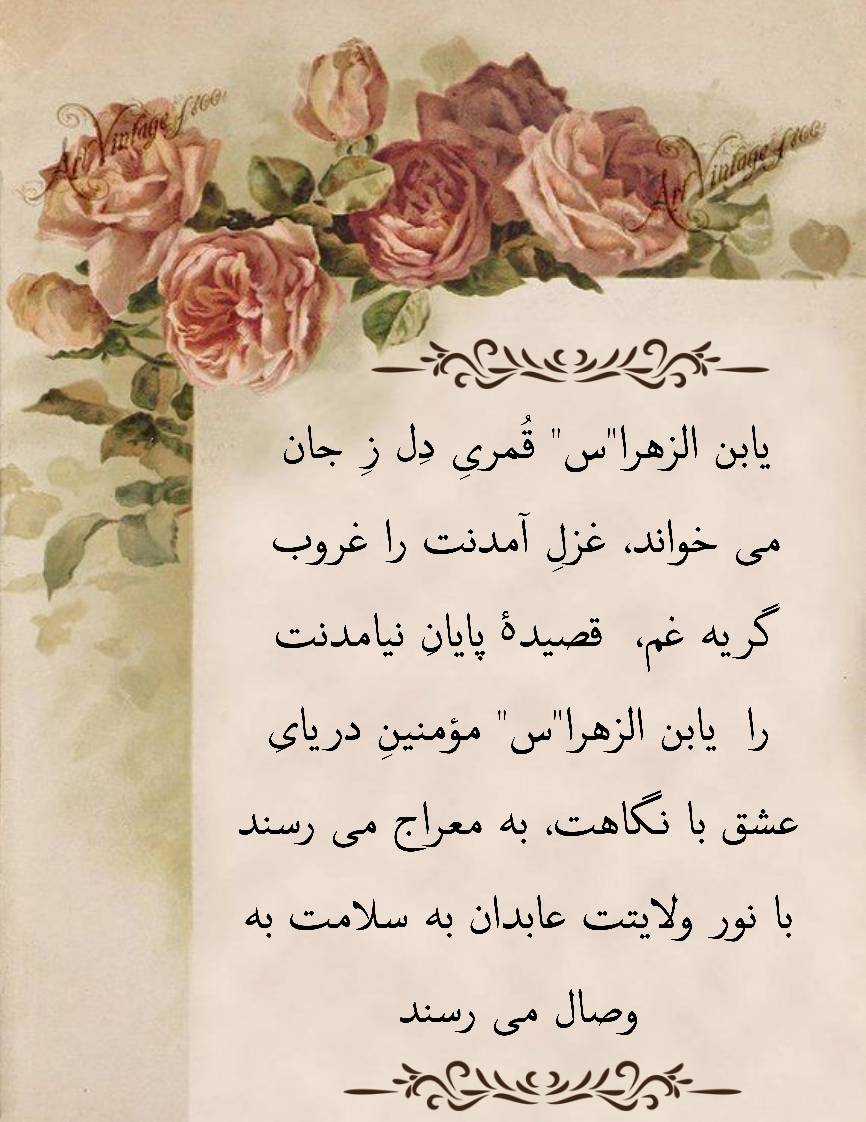 Art Vintage f100
Art Vintage f100
یابن الزهرا"س" قُمریِ دِل زِ جان
می خواند، غزلِ آمدنت را غروب
گریه غم، قصیدهٔ پایانِ نیامدنت
را یابن الزهرا"س" مؤمنینِ دریایِ
عشق با نگاهت، به معراج می رسند
با نور ولایتت عابدان به سلامت به
وصال می رسند